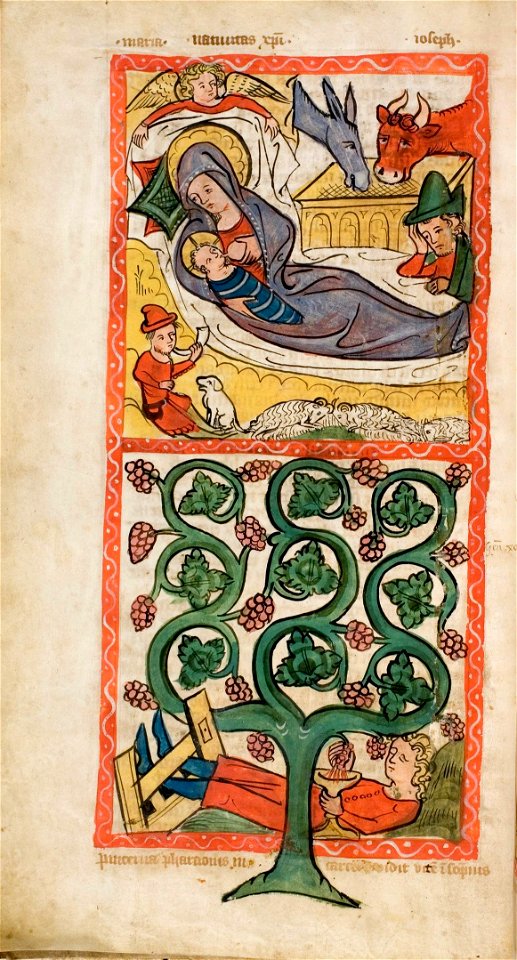 ·maria· ·nativitas xp̄i· ·ioseph·
pincerna pharaonis in vidit vitē ī